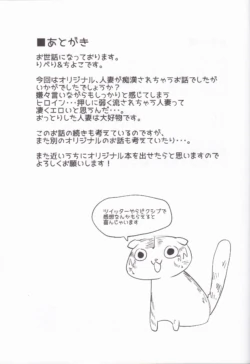 ■あとがき
お世話になっております。
りべり&ちよこです。
今回はオリジナル、人妻が痴漢されちゃうお話でしたが
いかがでしたでしょうか?
嫌々言いながらもしっかりと感じてしまう
ヒロイン・・・押しに弱く流されちゃう人妻って
凄くエロいと思うんです。
おっとりした人妻は大好物です。
このお話の続きも考えているのですが、
また別のオリジナルのお話も考えていたり・・・。
また近いうちにオリジナル本を出せたらと思いますので
よろしくお願いします!
ツイッターやピクシブで
感想なんかもらえると
喜んじゃいます